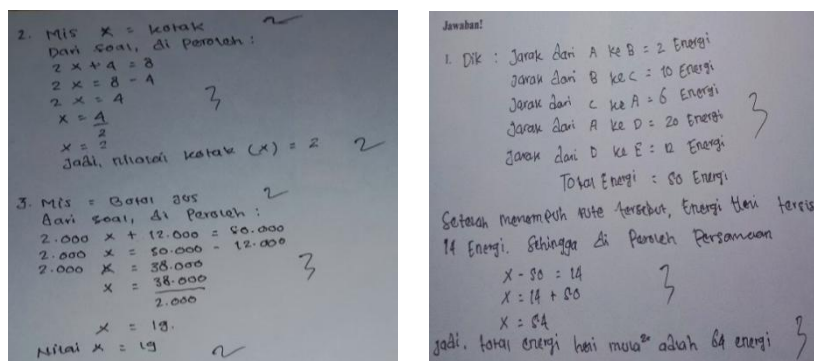 2. Mis x = kotak 2
Dari soal, di Peroleh :
2x + 4 = 8
2x = 8 - 4
2x = 4 3
x = 4
2
x = 2
Jadi, nilai kotak (x) = 2 2
3. Mis = Botol jus 2
Dari soal, di Peroleh :
2.000 x + 12.000 = 50.000
2.000 x = 50.000 - 12.000
2.000 x = 38.000
x = 38.000 3
2.000
x = 19.
Nilai x = 19 2
Jawaban!
1. Dik : Jarak dari A ke B = 2 Energi
Jarak dari B ke C = 10 Energi
Jarak dari C ke A = 6 Energi
Jarak dari A ke D = 20 Energi 3
Jarak dari D ke E = 12 Energi
Total Energi = 50 Energi
Setelah menempuh rute tersebut, Energi Heni tersis
14 Energi. Sehingga di Peroleh Persamaan
x - 50 = 14
x = 14 + 50 3
x = 64
Jadi, total energi heni mula² adlah 64 energi 3